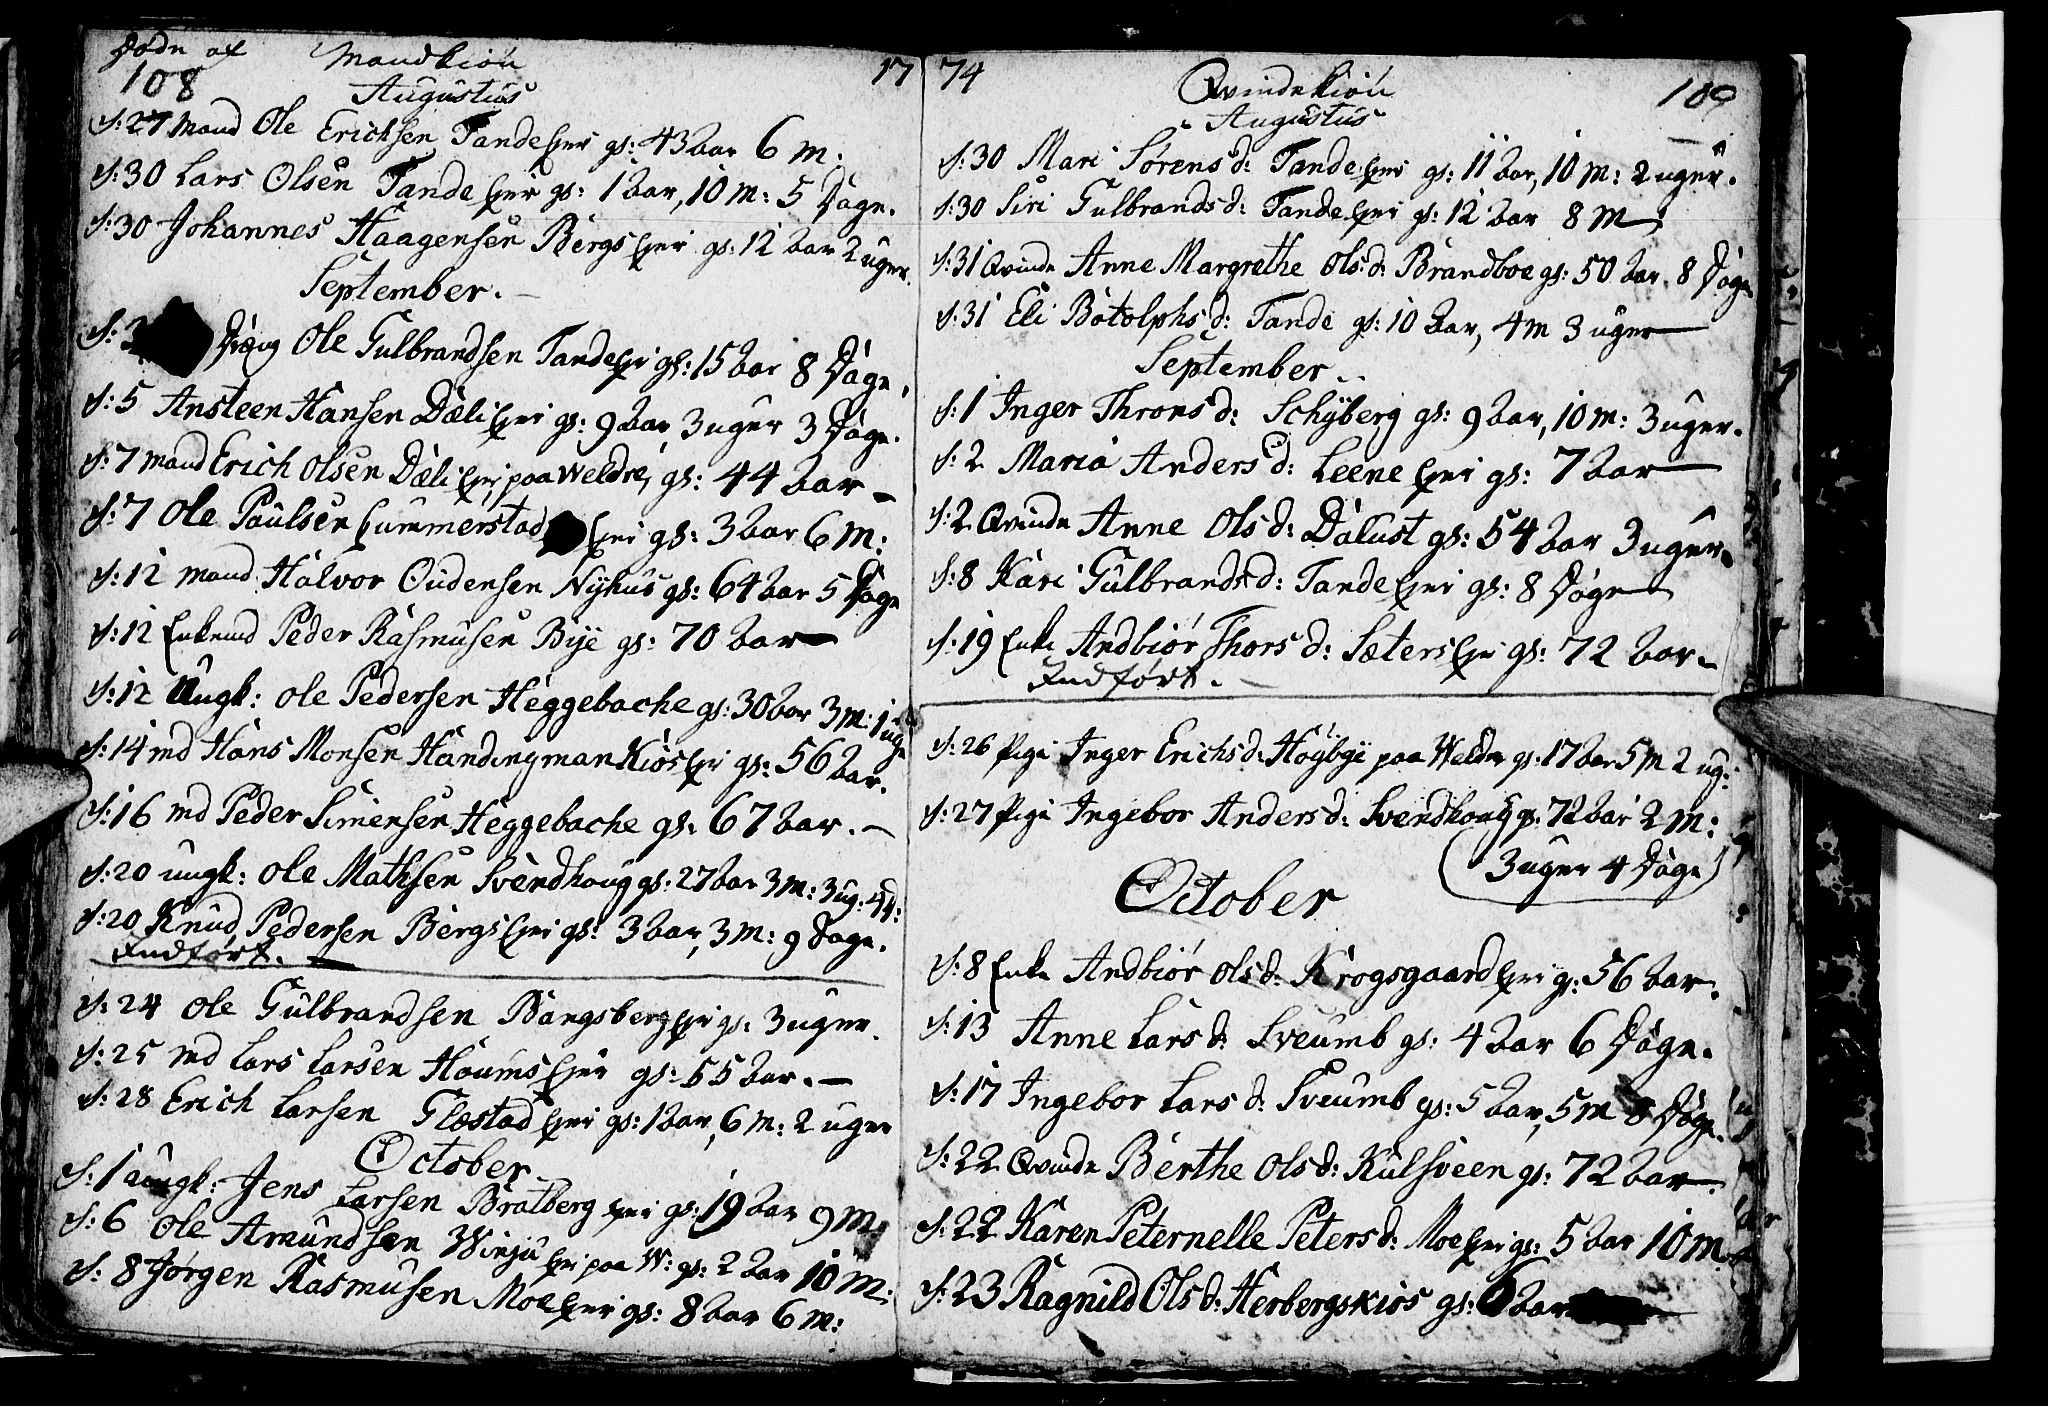 Døde af Mandkiön 17
108
Augustus
d: 27 Mand Ole Erichsen Tande Eyer gs: 43 Aar 6 M:
d: 30 Lars Olsen Tande Eyer gs: 1 Aar, 10 M: 5 Dage.
d: 30 Johannes Haagensen Bergs Eyer gs: 12 Aar 2 uger.
September.
d: 3 Dreng Ole Gulbrandsen Tande Eyr gs: 15 Aar 8 Dage.
d: 5 Ansteen Hansen Dæli Eyer gs: 9 Aar 3 uger 3 Dage.
d: 7 Mand Erich Olsen Dæli Eyr, paa Weldre, gs: 44 Aar
d: 7 Ole Paulsen Eyer gs: 3 Aar 6 M:
d: 12 Mand Halvor Oudensen Nyhus gs: 64 Aar 5 Dage
d: 12 Enkemd Peder Rasmusen Bye gs: 70 Aar
d: 12 Ungk: Ole Pedersen Heggebache gs: 30 Aar 3 M: 1 uge
d: 14 md Hans Monsen Handingman Kiös Eyr gs: 56 Aar.
d: 16 md Peder Simensen Heggebache gs: 67 Aar.
d: 20 ungk: Ole Mathsen Svendhoug gs: 27 Aar 3 M: 3 ug: 4 d:
d: 20 Knud Pedersen Bergs Eyer gs: 3 Aar, 3 M: 9 Dage.
Indført.
d: 24 Ole Gulbrandsen Bangsberg Eyr gs: 3 uger.
d: 25 md Lars Larsen Houms Eyer gs: 55 Aar.
d: 28 Erich Larsen Glæstad Eyer gs: 1 Aar, 6 M: 2 uger
October
d: 1 ungk: Jens Larsen Bratberg Eyer gs: 19 Aar 9 M:
d: 6 Ole Amundsen Winju Eyr paa W: gs: 2 Aar 10 M:
d: 8 Jörgen Rasmusen Moe Eyer gs: 8 Aar 6 M:
74 Qvindekiön 109
Augustus
d: 30 Mari Sörens d: Tande Eyer gs: 11 Aar, 10 M: 2 uger.
d: 30 Siri Gulbrands d: Tande Eyer gs: 12 Aar 8 M
d: 31 Qvinde Anne Margrethe Ols d: Brandboe gs: 50 Aar. 8 Dage
d: 31 Eli Botolphs d: Tande gs: 10 Aar, 4 M 3 uger
September
d: 1 Inger Throns d: Schyberg gs: 9 Aar, 10 M: 3 uger.
d: 2 Maria Anders d: Leene Eyer gs: 7 Aar
d: 2 Qvinde Anne Ols d: Dalust gs: 54 Aar 3 uger
d: 8 Kari Gulbrands d: Tande Eyer gs: 8 Dage
d: 19 Enke Andbiör Thors d: Sæters Eyr gs: 72 Aar
Indført.
d: 26 Pige Inger Erichs d: Höybye paa Weldre gs: 17 Aar 5 M 2 ug:
d: 27 Pige Ingebor Anders d: Svendhoug gs: 72 Aar 2 M:
(3 uger 4 Dage)
October
d: 8 Enke Andbiör Ols d: Krogsgaard Eyr gs: 56 Aar.
d: 13 Anne Lars d: Sveumb gs: 4 Aar 6 Dage.
d: 17 Ingebor Lars d: Sveumb gs: 5 Aar, 5 M 8 Dage.
d: 22 Qvinde Berthe Ols d: Kulsveen gs: 72 Aar
d: 22 Karen Peternelle Peters d: Moe Eyr gs: 5 Aar 10 M
d: 23 Ragnild Ols d: Herbergskiös gs: 6 Aar